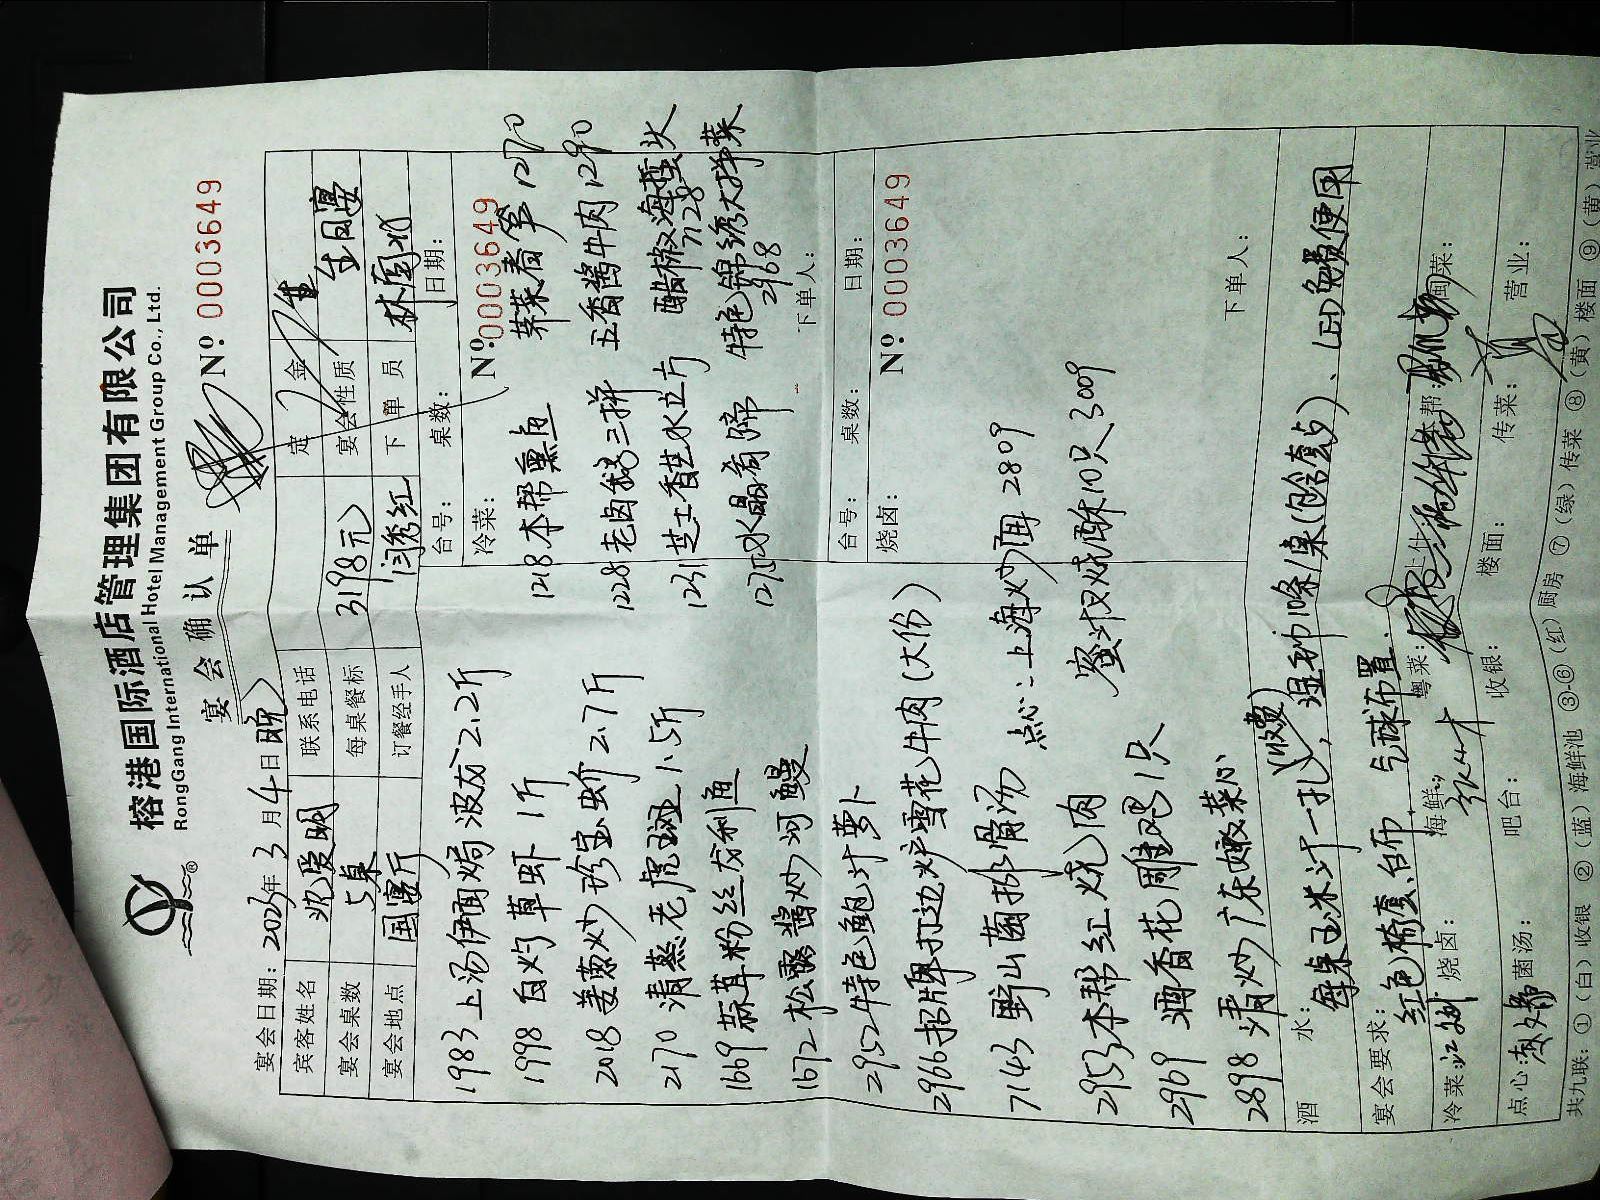 榕港国际酒店管理集团有限公司
RongGang International Hotel Management Group Co., Ltd.
宴会确认单
Nº: 0003649
宴会日期: 2023年3月4日 晚
宾客姓名 沈爱明 联系电话 定金
宴会桌数 5桌 每桌餐标 3198元 宴会性质 生日宴
宴会地点 国宴厅 订餐经手人 闫秀红 下单员
台号: 桌数: 日期:
冷菜: Nº: 0003649
1983 上汤伊面焗波龙2.2斤
1998 白灼草虾1斤
2018 姜葱炒珍宝蟹2.7斤
2170 清蒸老虎斑1.5斤
1669 蒜茸粉丝龙利鱼
1672 松露酱炒河鳗
2952 特色鲍汁萝卜
2966 招牌打边炉雪花牛肉(大份)
7143 野山菌排骨汤
2953 本帮红烧肉
2969 酒香花雕鸡1只
2898 清炒广东嫩菜心
1218 本帮熏鱼
荠菜春笋 1270
1228 老卤鹅三拼
五香酱牛肉 1290
1231 芝士香芋冰立方
醋椒海蜇头
1128
1274 水晶肴蹄
特色锦绣大拼菜
2968
下单人:
台号: 桌数: 日期:
烧卤: Nº: 0003649
点心: 上海炒面 2809
蜜汁叉烧酥10只 3009
下单人:
酒水: 每桌玉米汁一扎(收费), 湿纸巾10条/桌(包含点)、LED免费使用
宴会要求: 红色椅套台布. 气球布置.
冷菜: 烧卤: 海鲜: 粤菜: 上什: 本帮: 闽菜:
点心: 菌汤: 吧台: 收银: 楼面: 传菜: 营业:
共九联: ①(白)收银 ②(蓝)海鲜池 ③-⑥(红)厨房 ⑦(绿)传菜 ⑧(黄)楼面 ⑨(黄)营业